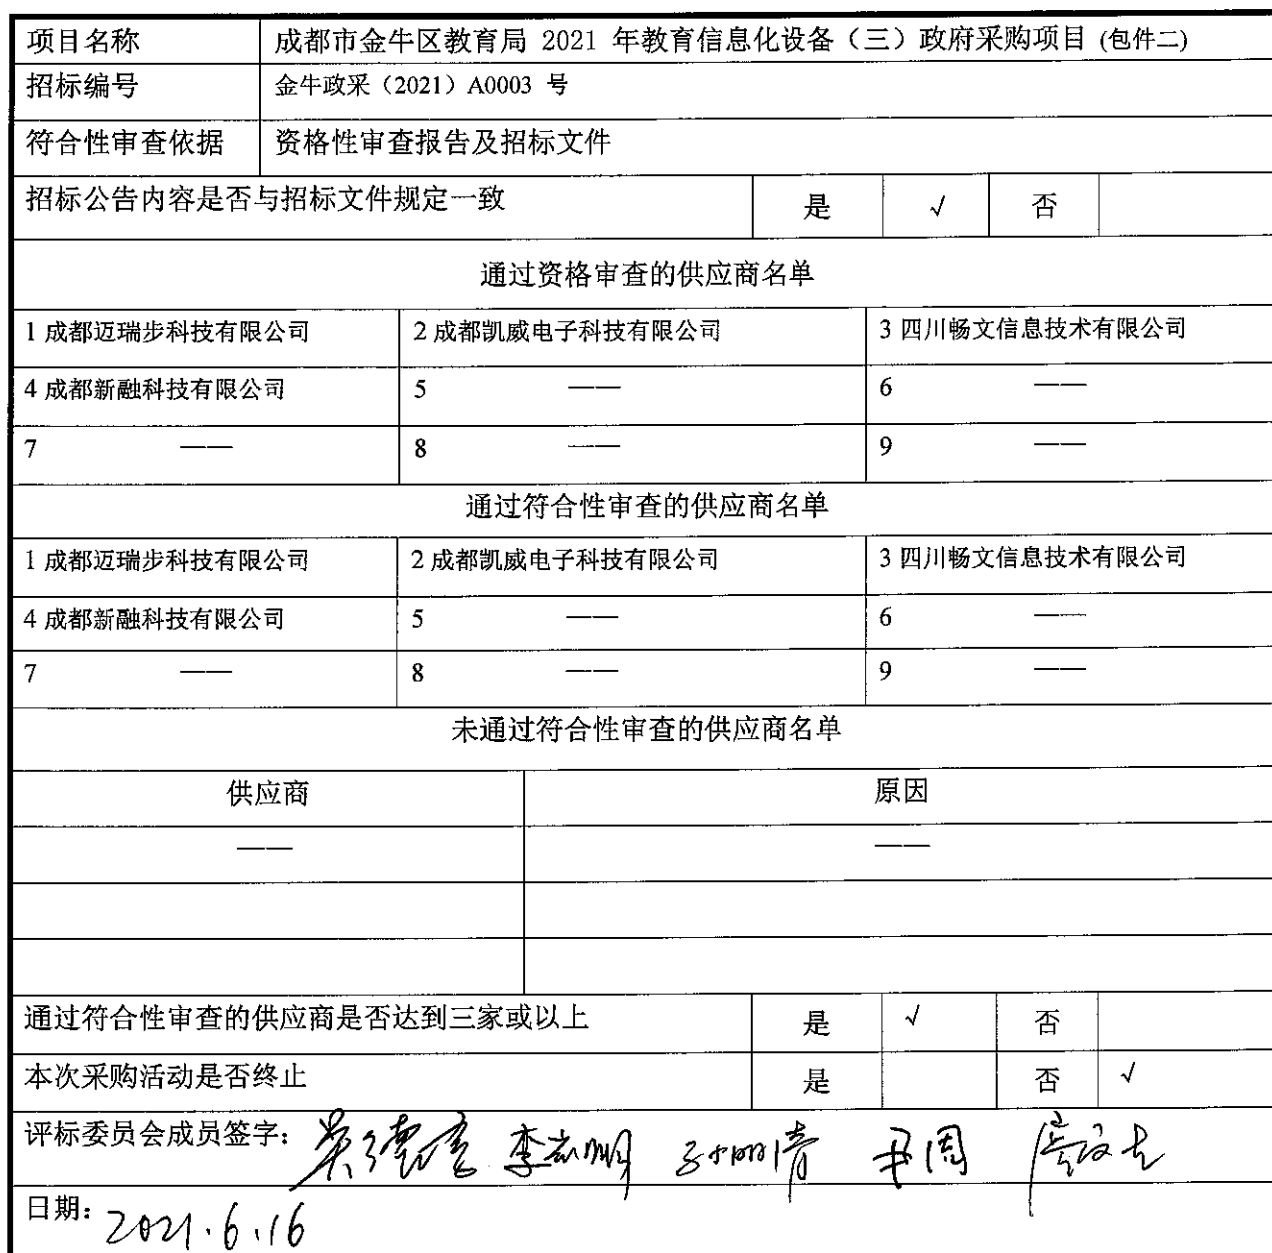 项目名称 成都市金牛区教育局 2021 年教育信息化设备（三）政府采购项目 (包件二)
招标编号 金牛政采（2021）A0003 号
符合性审查依据 资格性审查报告及招标文件
招标公告内容是否与招标文件规定一致 是 √ 否
通过资格审查的供应商名单
1 成都迈瑞步科技有限公司 2 成都凯威电子科技有限公司 3 四川畅文信息技术有限公司
4 成都新融科技有限公司 5 —— 6 ——
7 —— 8 —— 9 ——
通过符合性审查的供应商名单
1 成都迈瑞步科技有限公司 2 成都凯威电子科技有限公司 3 四川畅文信息技术有限公司
4 成都新融科技有限公司 5 —— 6 ——
7 —— 8 —— 9 ——
未通过符合性审查的供应商名单
供应商 原因
—— ——
通过符合性审查的供应商是否达到三家或以上 是 √ 否
本次采购活动是否终止 是 否 √
评标委员会成员签字：
日期：2021.6.16